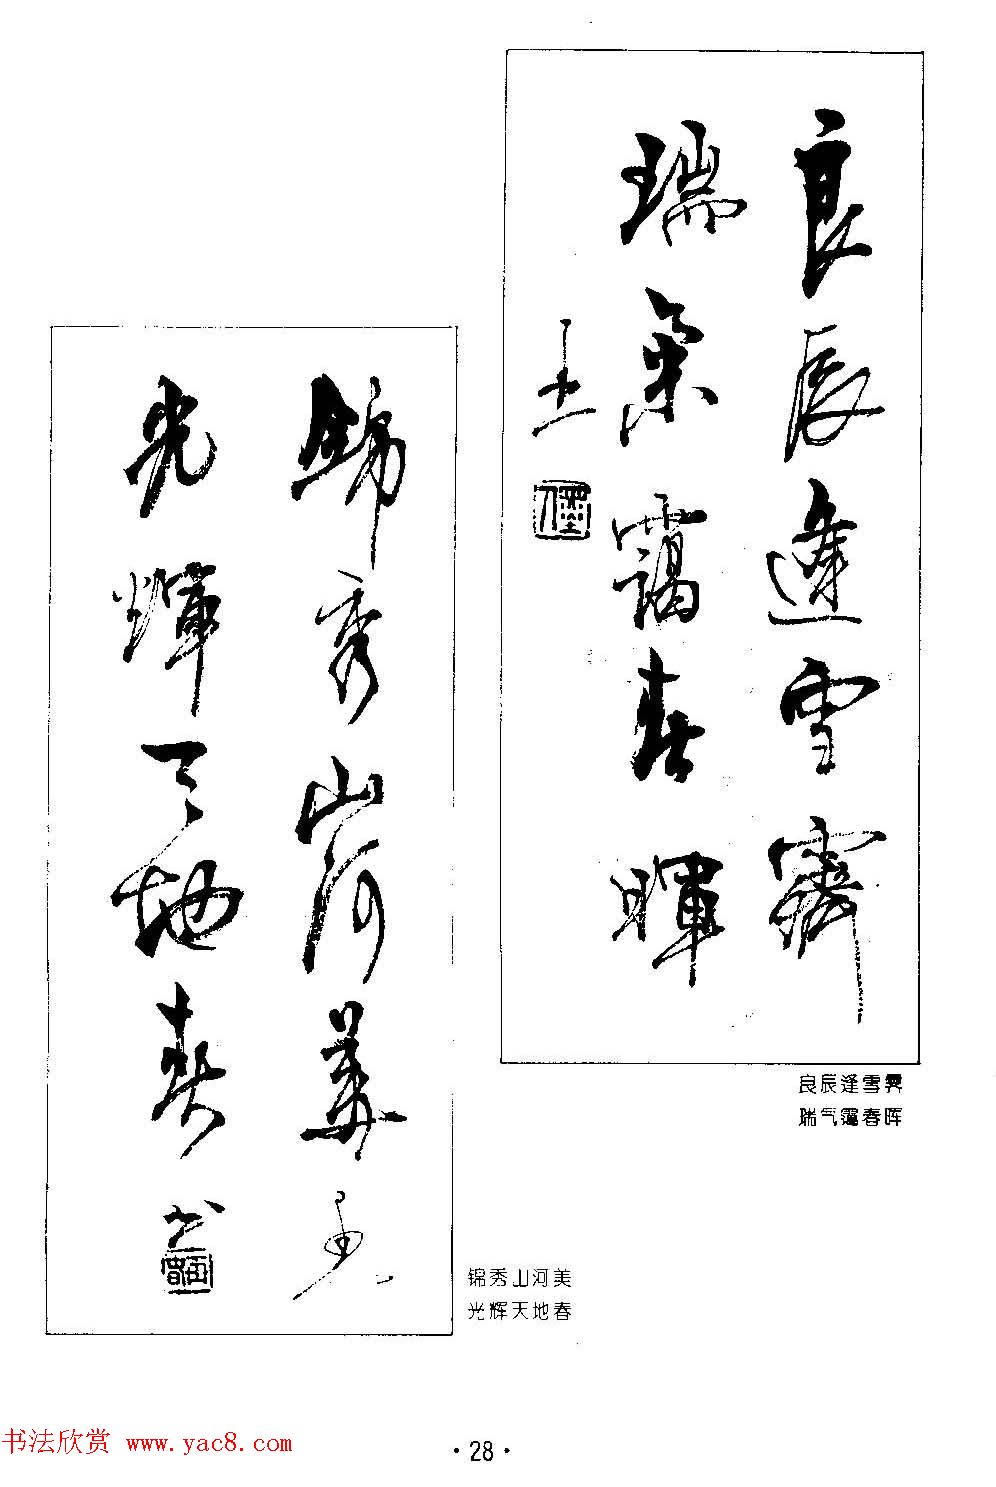 良辰逢雪霽
瑞氣靄春暉
良辰逢雪霁
瑞气霭春晖
錦秀山河美
光輝天地春
书
锦秀山河美
光辉天地春
书法欣赏 www.yac8.com
·28·